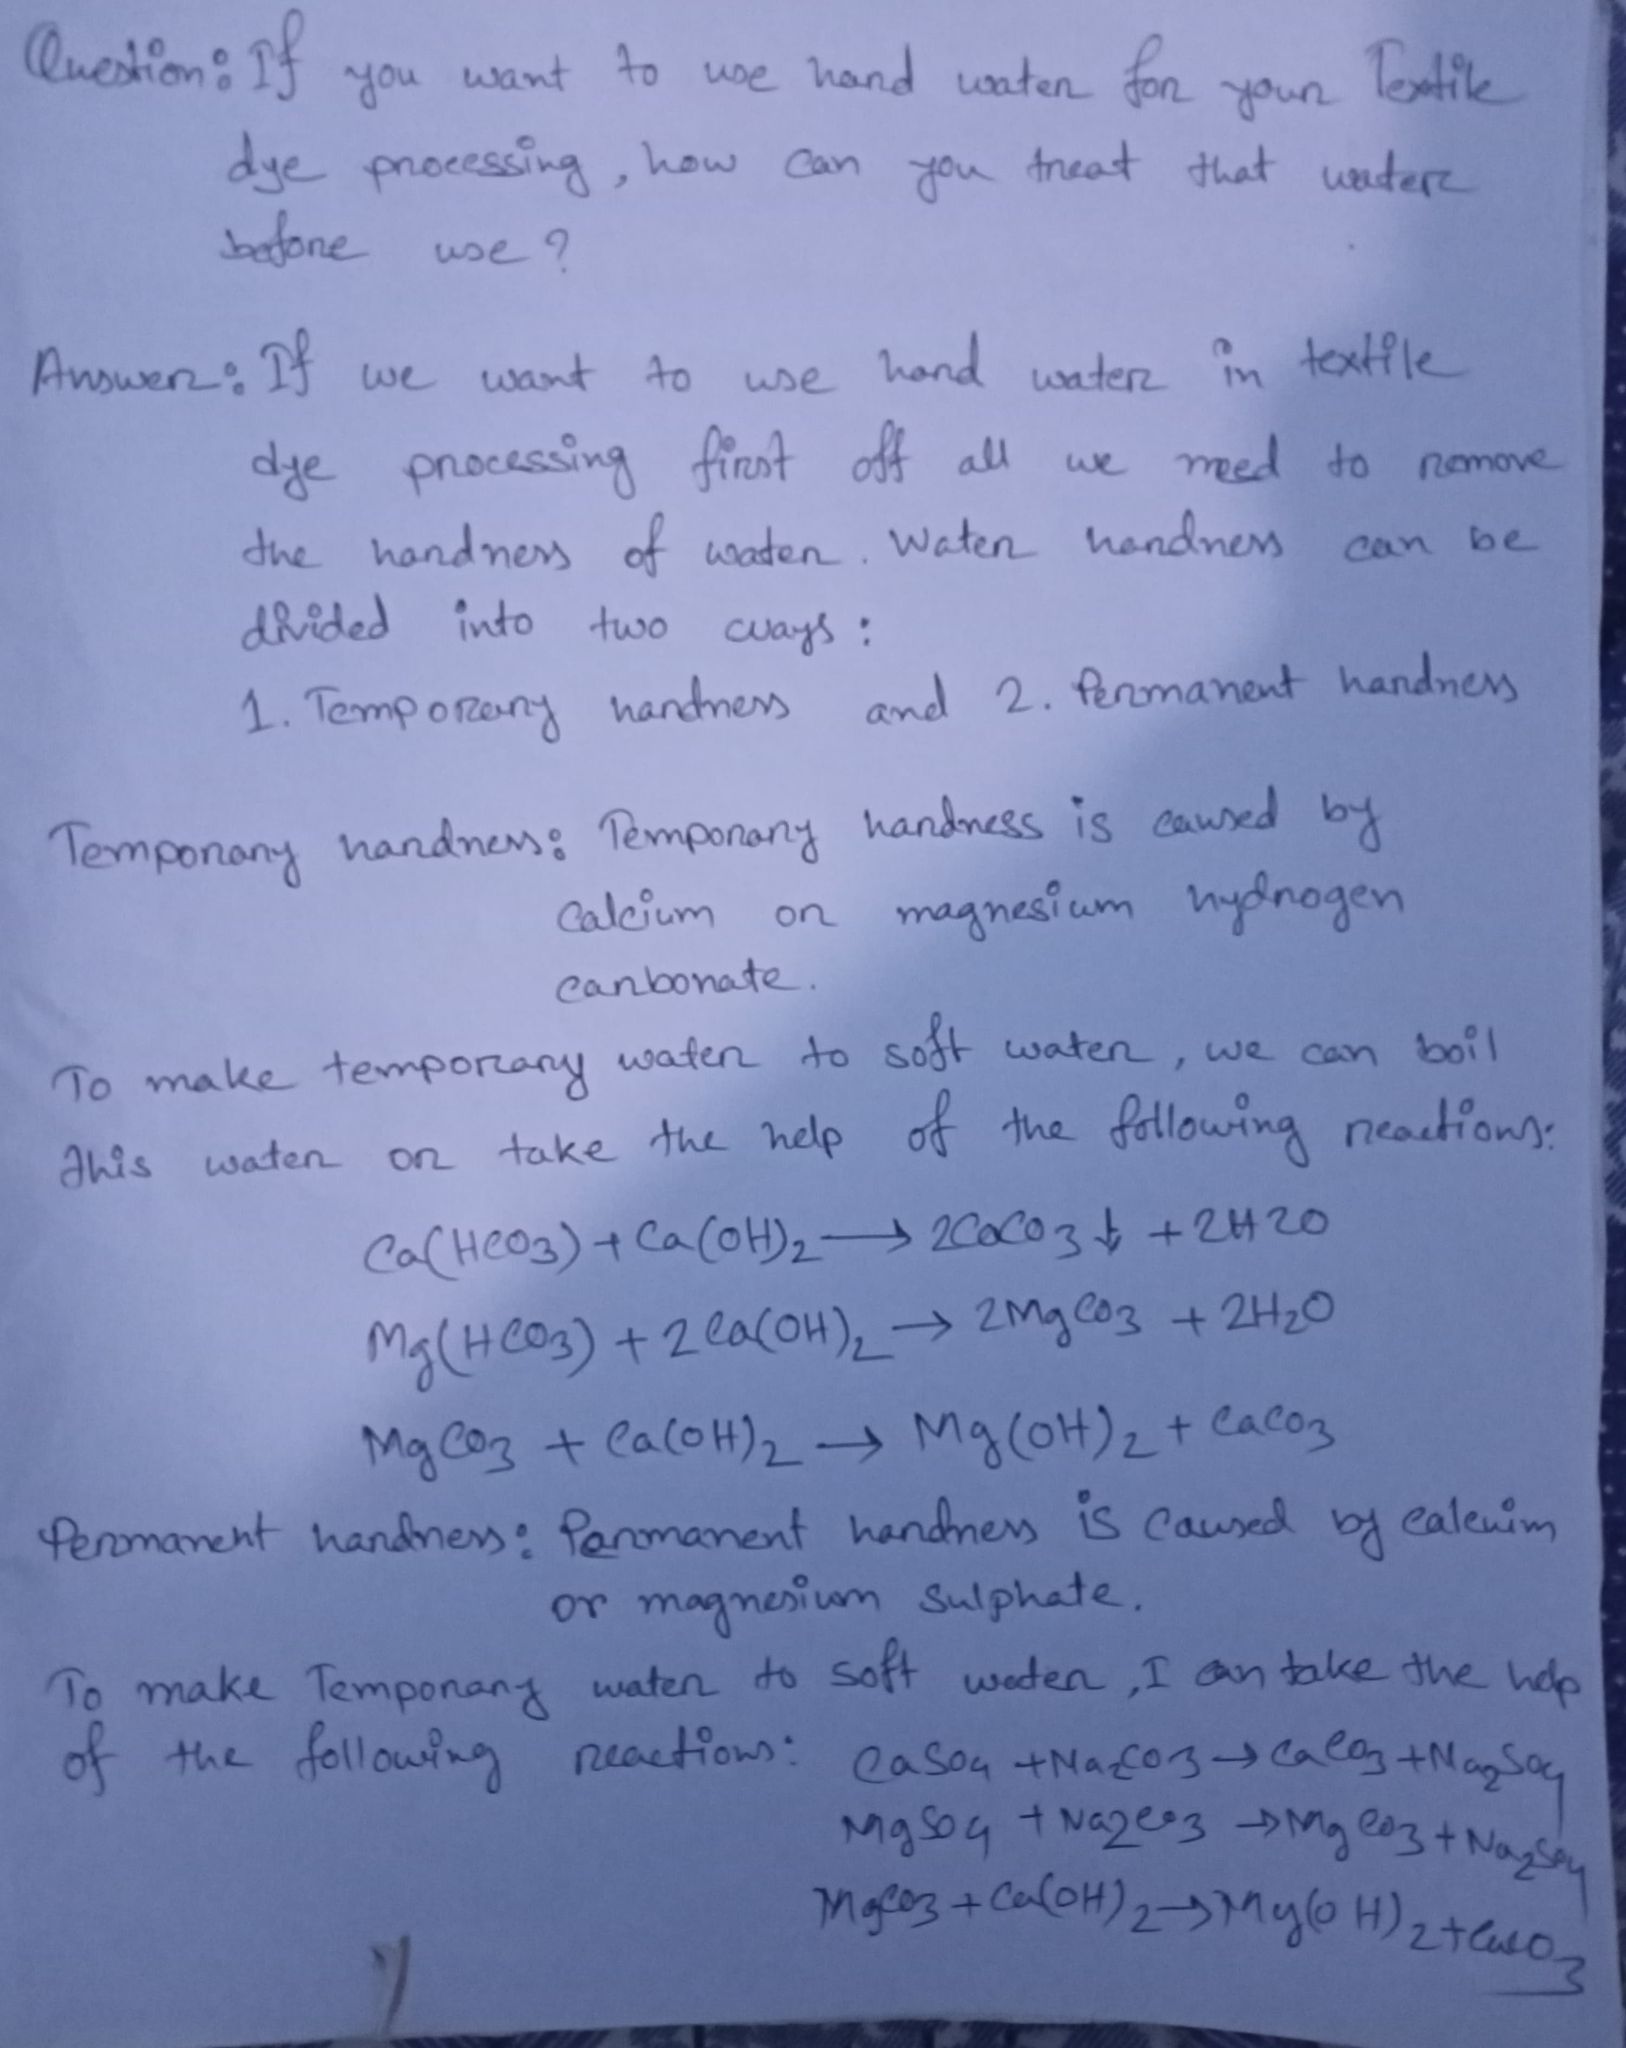 Question: If you want to use hard water for your Textile
dye processing, how can you treat that water
before use?
Answer: If we want to use hard water in textile
dye processing first off all we need to remove
the hardness of water. Water hardness can be
divided into two ways:
1. Temporary hardness and 2. Permanent hardness
Temporary hardness: Temporary hardness is caused by
Calcium or magnesium hydrogen
carbonate.
To make temporary water to soft water, we can boil
this water or take the help of the following reactions:
Ca(HCO3) + Ca(OH)2 → 2CaCO3↓ + 2H2O
Mg(HCO3) + 2Ca(OH)2 → 2MgCO3 + 2H2O
MgCO3 + Ca(OH)2 → Mg(OH)2 + CaCO3
Permanent hardness: Permanent hardness is caused by calcuim
or magnesium sulphate.
To make Temporary water to soft water, I can take the help
of the following reactions: CaSO4 + Na2CO3 → CaCO3 + Na2SO4
MgSO4 + Na2CO3 → MgCO3 + Na2SO4
MgCO3 + Ca(OH)2 → Mg(OH)2 + CaCO3